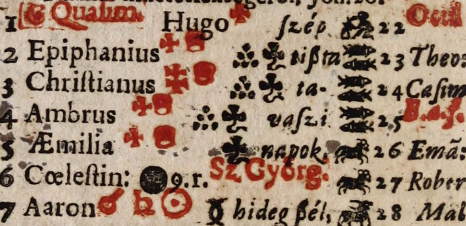 1 G Quasim. Hugo szép 22 Ocul
2 Epiphanius tißta 23 Theo
3 Christianus ta- 24 Casim
4 Ambrus vaszi 25 B. a. s.
5 Æmilia napok. 26 Emã:
6 Cœlestin: 9.r. Sz Györg. 27 Rober
7 Aaron ♂ ♄ ☉ ☿ hideg ßél, 28 Mal